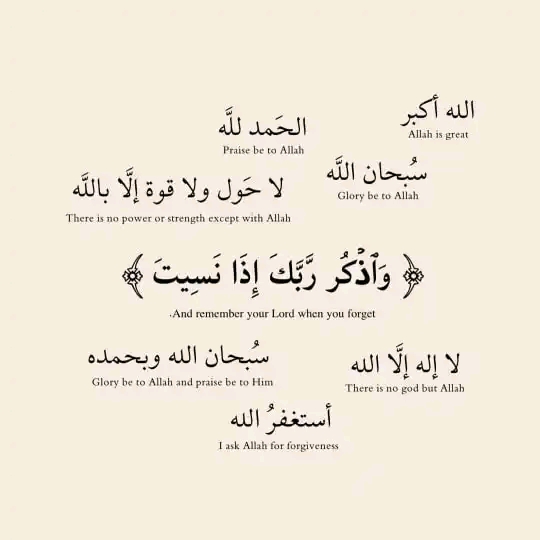 الله أكبر
Allah is great
الحَمد للَّه
Praise be to Allah
سُبحان اللَّه
Glory be to Allah
لا حَول ولا قوة إلَّا باللَّه
There is no power or strength except with Allah
﴿ وَٱذْكُر رَّبَّكَ إِذَا نَسِيتَ ﴾
.And remember your Lord when you forget
سُبحان الله وبحمده
Glory be to Allah and praise be to Him
لا إله إلَّا الله
There is no god but Allah
أستغفرُ الله
I ask Allah for forgiveness